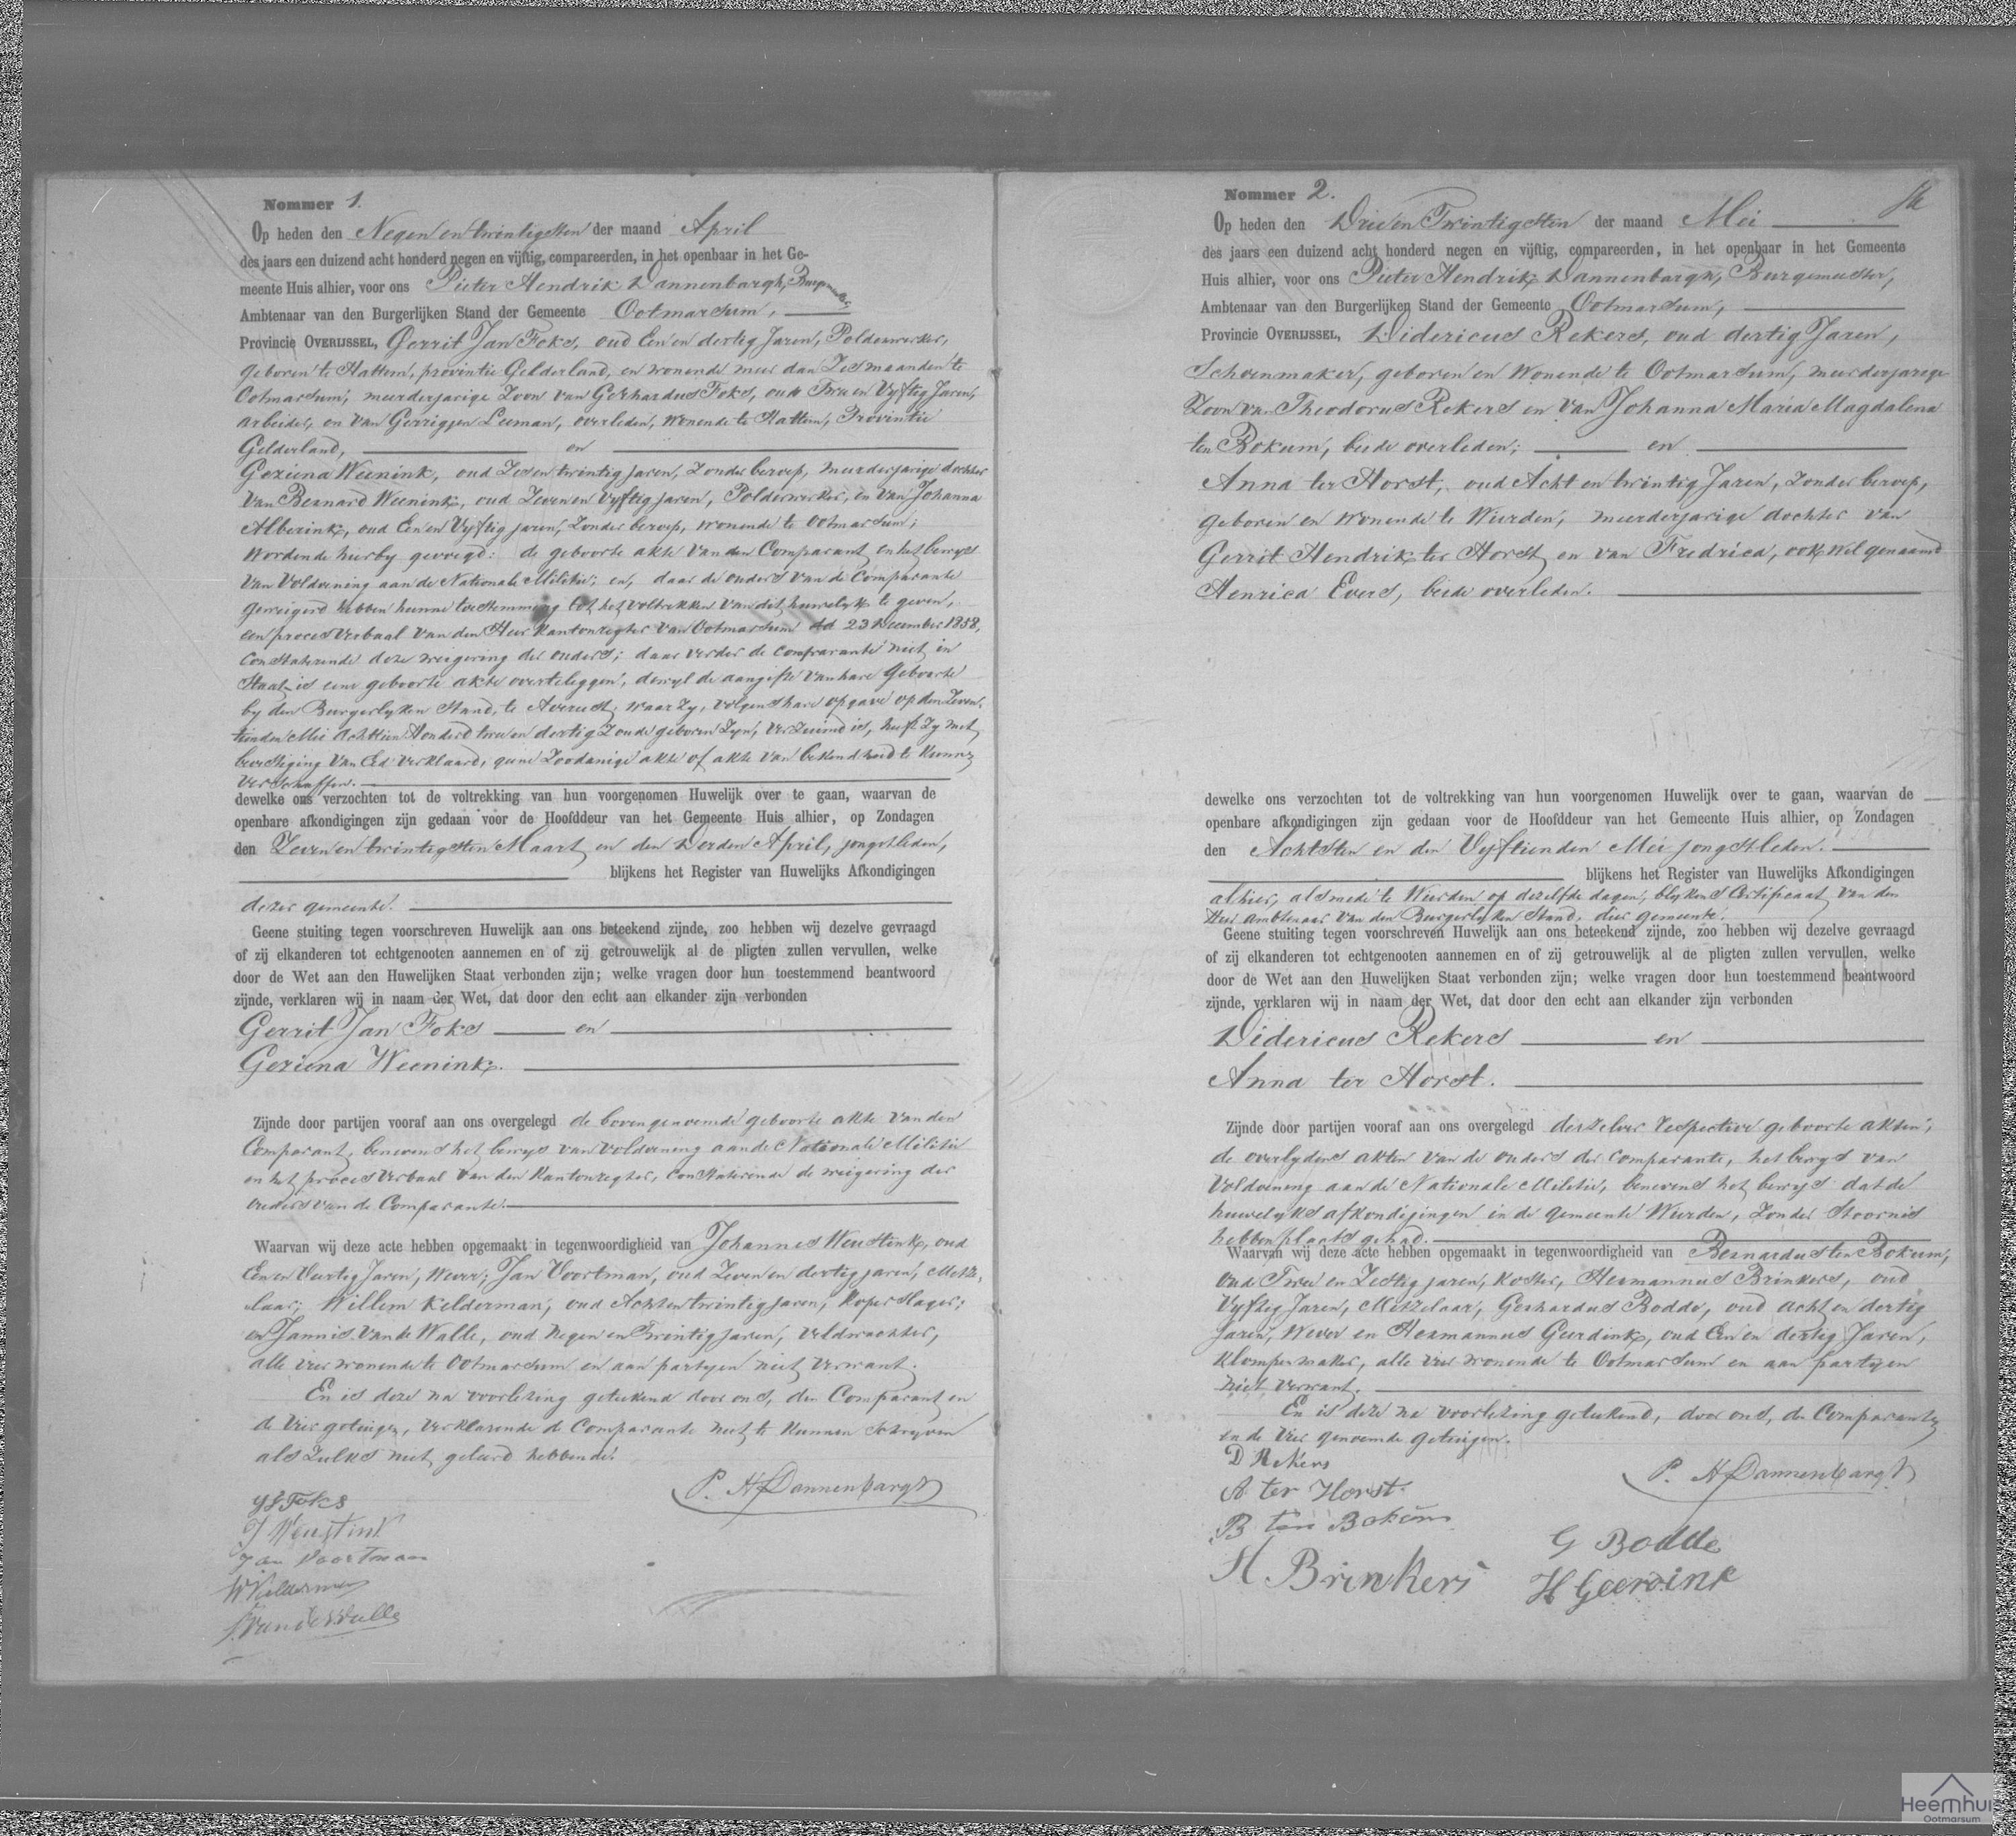 Nommer 1.
Op heden den Negen en twintigsten der maand April
des jaars een duizend acht honderd negen en vijftig, compareerden, in het openbaar in het Ge-
meente Huis alhier, voor ons Pieter Hendrik Dannenbargh, Burgemeester
Ambtenaar van den Burgerlijken Stand der Gemeente Ootmarsum,
Provincie OVERIJSSEL, Gerrit Jan Foks, oud Een en dertig Jaren, Polderwerker,
geboren te Hattem, provintie Gelderland, en wonende meer dan Zes maanden te
Ootmarsum, meerderjarige Zoon van Gerhardus Foks, oud Twee en Vyftig Jaren,
arbeider, en van Gerrigjen Leeman, overleden, wonende te Hattem, Provintie
Gelderland, en
Geziena Weenink, oud Zes en twintig jaren, Zonder beroep, meerderjarige dochter
van Bernard Weenink, oud Zeven en Vyftig jaren, Polderwerker, en van Johanna
Alberink, oud Een en Vyftig jaren, Zonder beroep, wonende te Ootmarsum;
Wordende hierby gevoegd: de geboorte akte van den Comparant en het bewys
van Voldoening aan de Nationale Militie; en, daar de ouders van de Comparante
geweigerd hebben hunne toestemming tot het voltrekken van dit huwelyk te geven,
een proces verbaal van den Heer Kantonregter van Ootmarsum dd 23 December 1858,
Constaterende deze weigering der ouders; daar verder de comparante niet in
Staat is eene geboorte akte overteleggen, dewyl de aangifte van hare Geboorte
by den Burgerlyken Stand, te Avereest, waar zy, volgens hare opgave op den Zeven-
tienden Mei Achttien honderd twee en dertig Zoude geboren Zyn, verzuimd is, heeft Zy met
bevestiging van Eed verklaard, geene Zoodanige akte of akte van bekendheid te kunnen
verschaffen.
dewelke ons verzochten tot de voltrekking van hun voorgenomen Huwelijk over te gaan, waarvan de
openbare afkondigingen zijn gedaan voor de Hoofddeur van het Gemeente Huis alhier, op Zondagen
den Zeven en twintigsten Maart en den Derden April, jongstleden,
blijkens het Register van Huwelijks Afkondigingen
dezer gemeente.
Geene stuiting tegen voorschreven Huwelijk aan ons beteekend zijnde, zoo hebben wij dezelve gevraagd
of zij elkanderen tot echtgenooten aannemen en of zij getrouwelijk al de pligten zullen vervullen, welke
door de Wet aan den Huwelijken Staat verbonden zijn; welke vragen door hun toestemmend beantwoord
zijnde, verklaren wij in naam der Wet, dat door den echt aan elkander zijn verbonden
Gerrit Jan Foks en
Geziena Weenink.
Zijnde door partijen vooraf aan ons overgelegd de bovengenoemde geboorte akte van den
Comparant, benevens het bewys van voldoening aan de Nationale Militie
en het proces verbaal van den Kantonregter, Constaterende de weigering der
ouders van de Comparante.
Waarvan wij deze acte hebben opgemaakt in tegenwoordigheid van Johannes Weustink, oud
Een en Veertig Jaren, Wever; Jan Voortman, oud Zeven en dertig jaren, Metse-
laar; Willem Kelderman, oud Acht en twintig jaren, Koperslager;
en Jannis van de Walle, oud Negen en Twintig jaren, Veldwachter,
alle vier wonende te Ootmarsum en aan partyen niet verwant.
En is deze na voorlezing geteekend door ons, den Comparant en
de Vier getuigen, verklarende de Comparante niet te kunnen schryven
als Zulks niet geleerd hebbende.
P. H Dannenbargh
GJ Foks
J Weustink
Jan Voortman
W Kelderman
J. van de Walle
Nommer 2.
Op heden den Drie en Twintigsten der maand Mei
des jaars een duizend acht honderd negen en vijftig, compareerden, in het openbaar in het Gemeente
Huis alhier, voor ons Pieter Hendrik Dannenbargh, Burgemeester,
Ambtenaar van den Burgerlijken Stand der Gemeente Ootmarsum,
Provincie OVERIJSSEL, Didericus Rekers, oud dertig Jaren,
Schoenmaker, geboren en Wonende te Ootmarsum, meerderjarige
Zoon van Theodorus Rekers en van Johanna Maria Magdalena
ten Bokum, beide overleden; en
Anna ter Horst, oud Acht en twintig Jaren, Zonder beroep,
geboren en wonende te Wierden, meerderjarige dochter van
Gerrit Hendrik ter Horst en van Fredrica, ook wel genaamd
Henrica Evers, beide overleden.
dewelke ons verzochten tot de voltrekking van hun voorgenomen Huwelijk over te gaan, waarvan de
openbare afkondigingen zijn gedaan voor de Hoofddeur van het Gemeente Huis alhier, op Zondagen
den Achtsten en den Vyftienden Mei jongstleden.
blijkens het Register van Huwelijks Afkondigingen
alhier, alsmede te Wierden op dezelfde dagen, blykens Certificaat van den
Heer Ambtenaar van den Burgerlyken Stand, dier gemeente.
Geene stuiting tegen voorschreven Huwelijk aan ons beteekend zijnde, zoo hebben wij dezelve gevraagd
of zij elkanderen tot echtgenooten aannemen en of zij getrouwelijk al de pligten zullen vervullen, welke
door de Wet aan den Huwelijken Staat verbonden zijn; welke vragen door hun toestemmend beantwoord
zijnde, verklaren wij in naam der Wet, dat door den echt aan elkander zijn verbonden
Didericus Rekers en
Anna ter Horst.
Zijnde door partijen vooraf aan ons overgelegd derzelver respective geboorte akten;
de overlydens akten van de ouders der comparante, het bewys van
Voldoening aan de Nationale Militie, benevens het bewys dat de
huwelyks afkondigingen in de gemeente Wierden, Zonder Stoornis
hebben plaats gehad.
Waarvan wij deze acte hebben opgemaakt in tegenwoordigheid van Bernardus ten Bokum,
oud Twee en Zestig jaren, Koster, Hermannus Brinkers, oud
Vyftig Jaren, Metzelaar, Gerhardus Bodde, oud acht en dertig
Jaren, Wever en Hermannus Geerdink, oud Een en dertig Jaren,
Klompenmaker, alle vier wonende te Ootmarsum en aan partyen
niet verwant.
En is deze na voorlezing geteekend, door ons, de Comparanten
en de Vier genoemde getuigen.
D Rekers
P. H Dannenbargh
A. ter Horst.
B ten Bokum
G Bodde
H. Brinkers
H Geerdink
Heemhuis
Ootmarsum